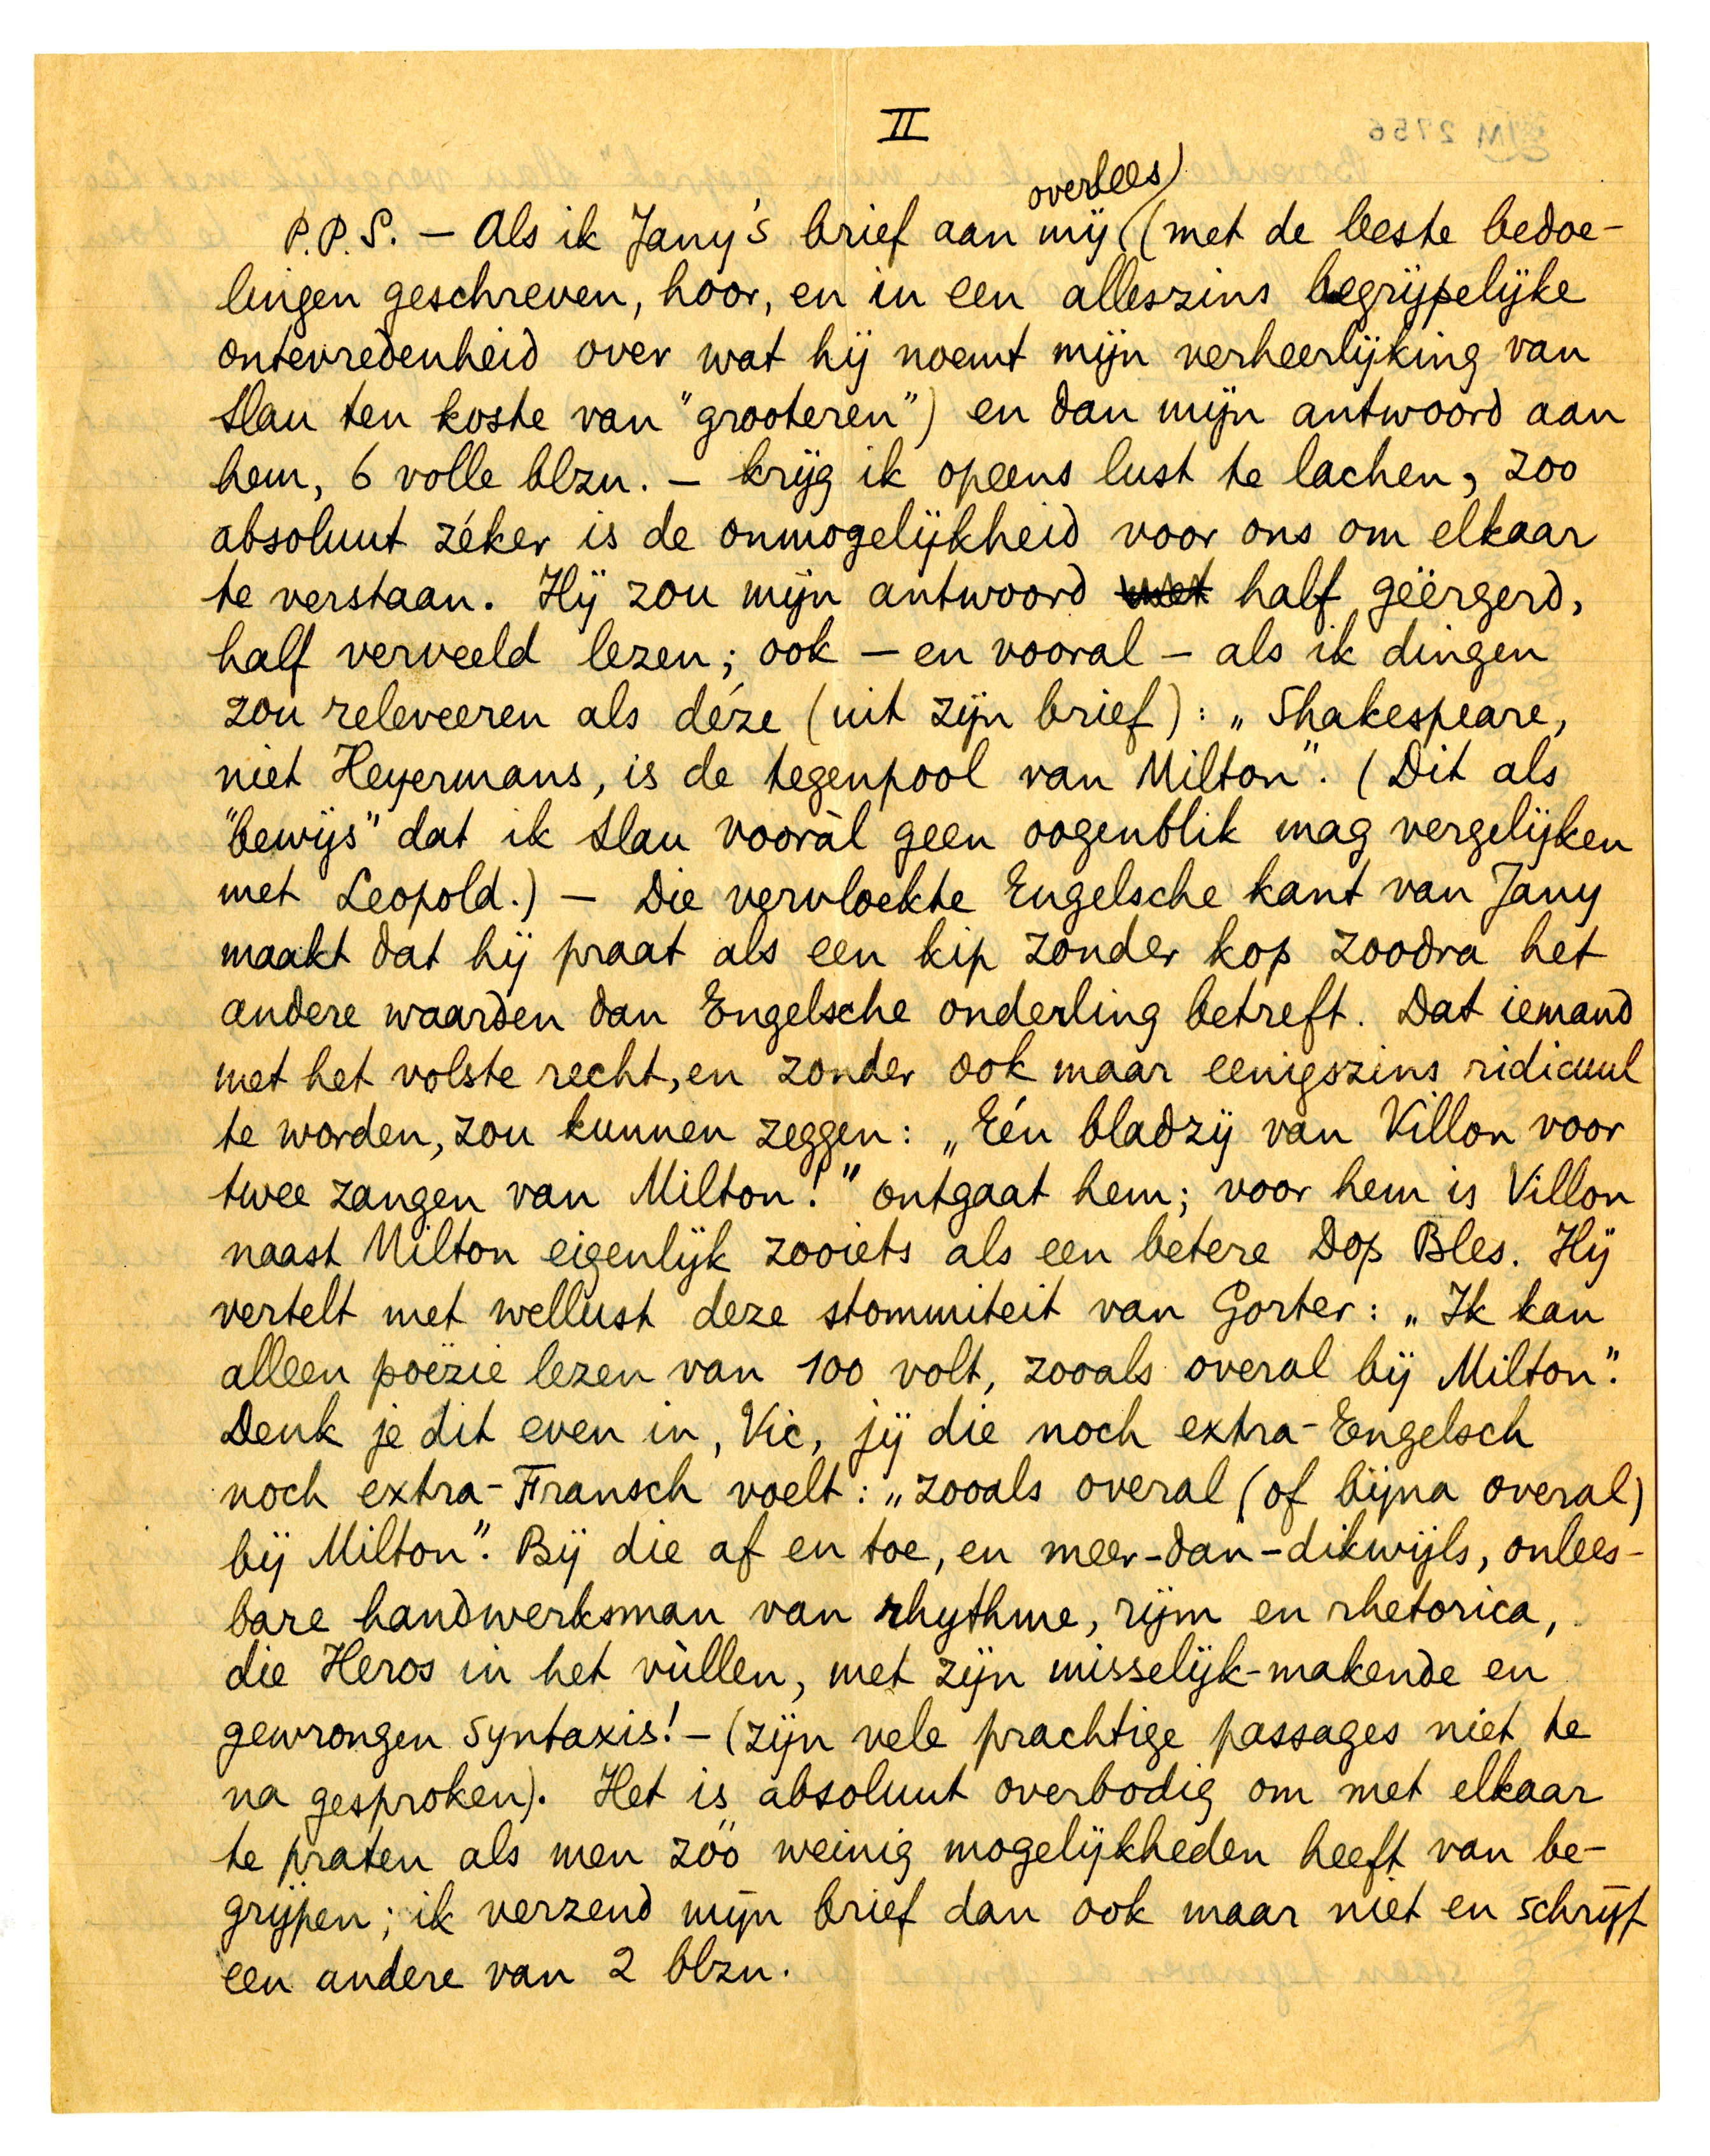 II
overlees
P.P.S. – Als ik Jany's brief aan mij (met de beste bedoe-
lingen geschreven, hoor, en in een alleszins begrijpelijke
ontevredenheid over wat hij noemt mijn verheerlijking van
Slau ten koste van "grooteren") en dan mijn antwoord aan
hem, 6 volle blzn. – krijg ik opeens lust te lachen, zoo
absoluut zéker is de onmogelijkheid voor ons om elkaar
te verstaan. Hij zou mijn antwoord met half geërgerd,
half verveeld lezen; ook – en vooral – als ik dingen
zou releveeren als déze (uit zijn brief): „Shakespeare,
niet Heyermans, is de tegenpool van Milton". (Dit als
"bewijs" dat ik Slau vooràl geen oogenblik mag vergelijken
met Leopold.) – Die vervloekte Engelsche kant van Jany
maakt dat hij praat als een kip zonder kop zoodra het
andere waarden dan Engelsche onderling betreft. Dat iemand
met het volste recht, en zonder ook maar eenigszins ridicuul
te worden, zou kunnen zeggen: „Eén bladzij van Villon voor
twee zangen van Milton!" ontgaat hem; voor hem is Villon
naast Milton eigenlijk zooiets als een betere Dop Bles. Hij
vertelt met wellust deze stommiteit van Gorter: „Ik kan
alleen poëzie lezen van 100 volt, zooals overal bij Milton".
Denk je dit even in, Vic, jij die noch extra-Engelsch
noch extra-Fransch voelt: „zooals overal (of bijna overal)
bij Milton". Bij die af en toe, en meer-dan-dikwijls, onlees-
bare handwerksman van rhythme, rijm en rhetorica,
die Heros in het vùllen, met zijn misselijk-makende en
gewrongen syntaxis! – (zijn vele prachtige passages niet te
na gesproken). Het is absoluut overbodig om met elkaar
te praten als men zóó weinig mogelijkheden heeft van be-
grijpen; ik verzend mijn brief dan ook maar niet en schrijf
een andere van 2 blzn.